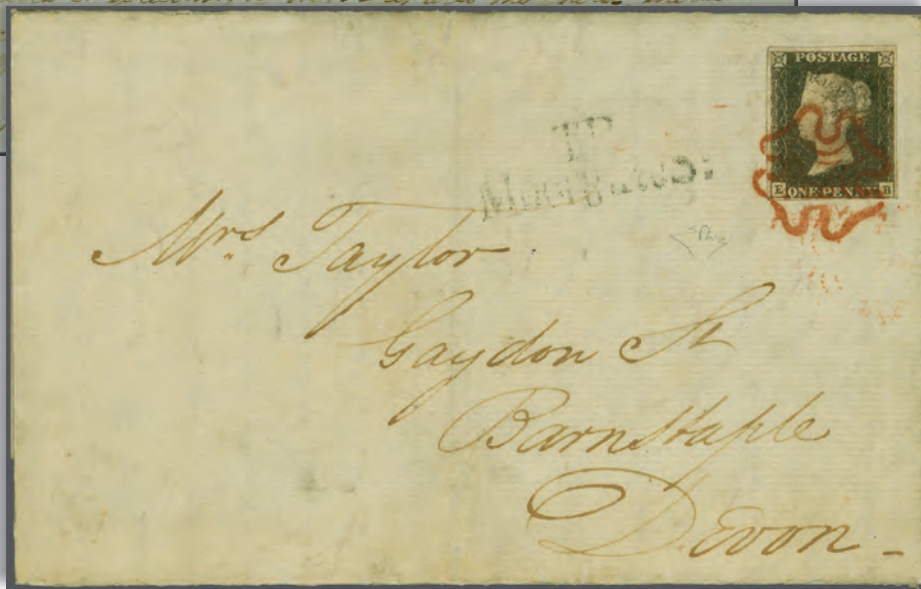 POSTAGE
E ONE PENNY B
T.P
Mrs. Taylor
Gaydon St
Barnstaple
Devon -